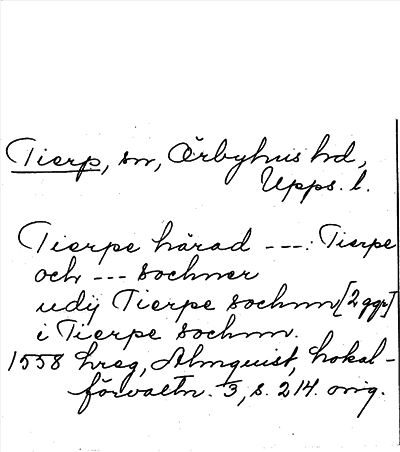 Tierp, sn, Örbyhus hd,
Upps. l.
Tierpe härad ---: Tierpe
och --- sochner
udij Tierpe sochnn [2 ggr]
i Tierpe sochnn.
1558 hreg, Almquist, Lokal-
förvaltn. 3, s. 214. orig.